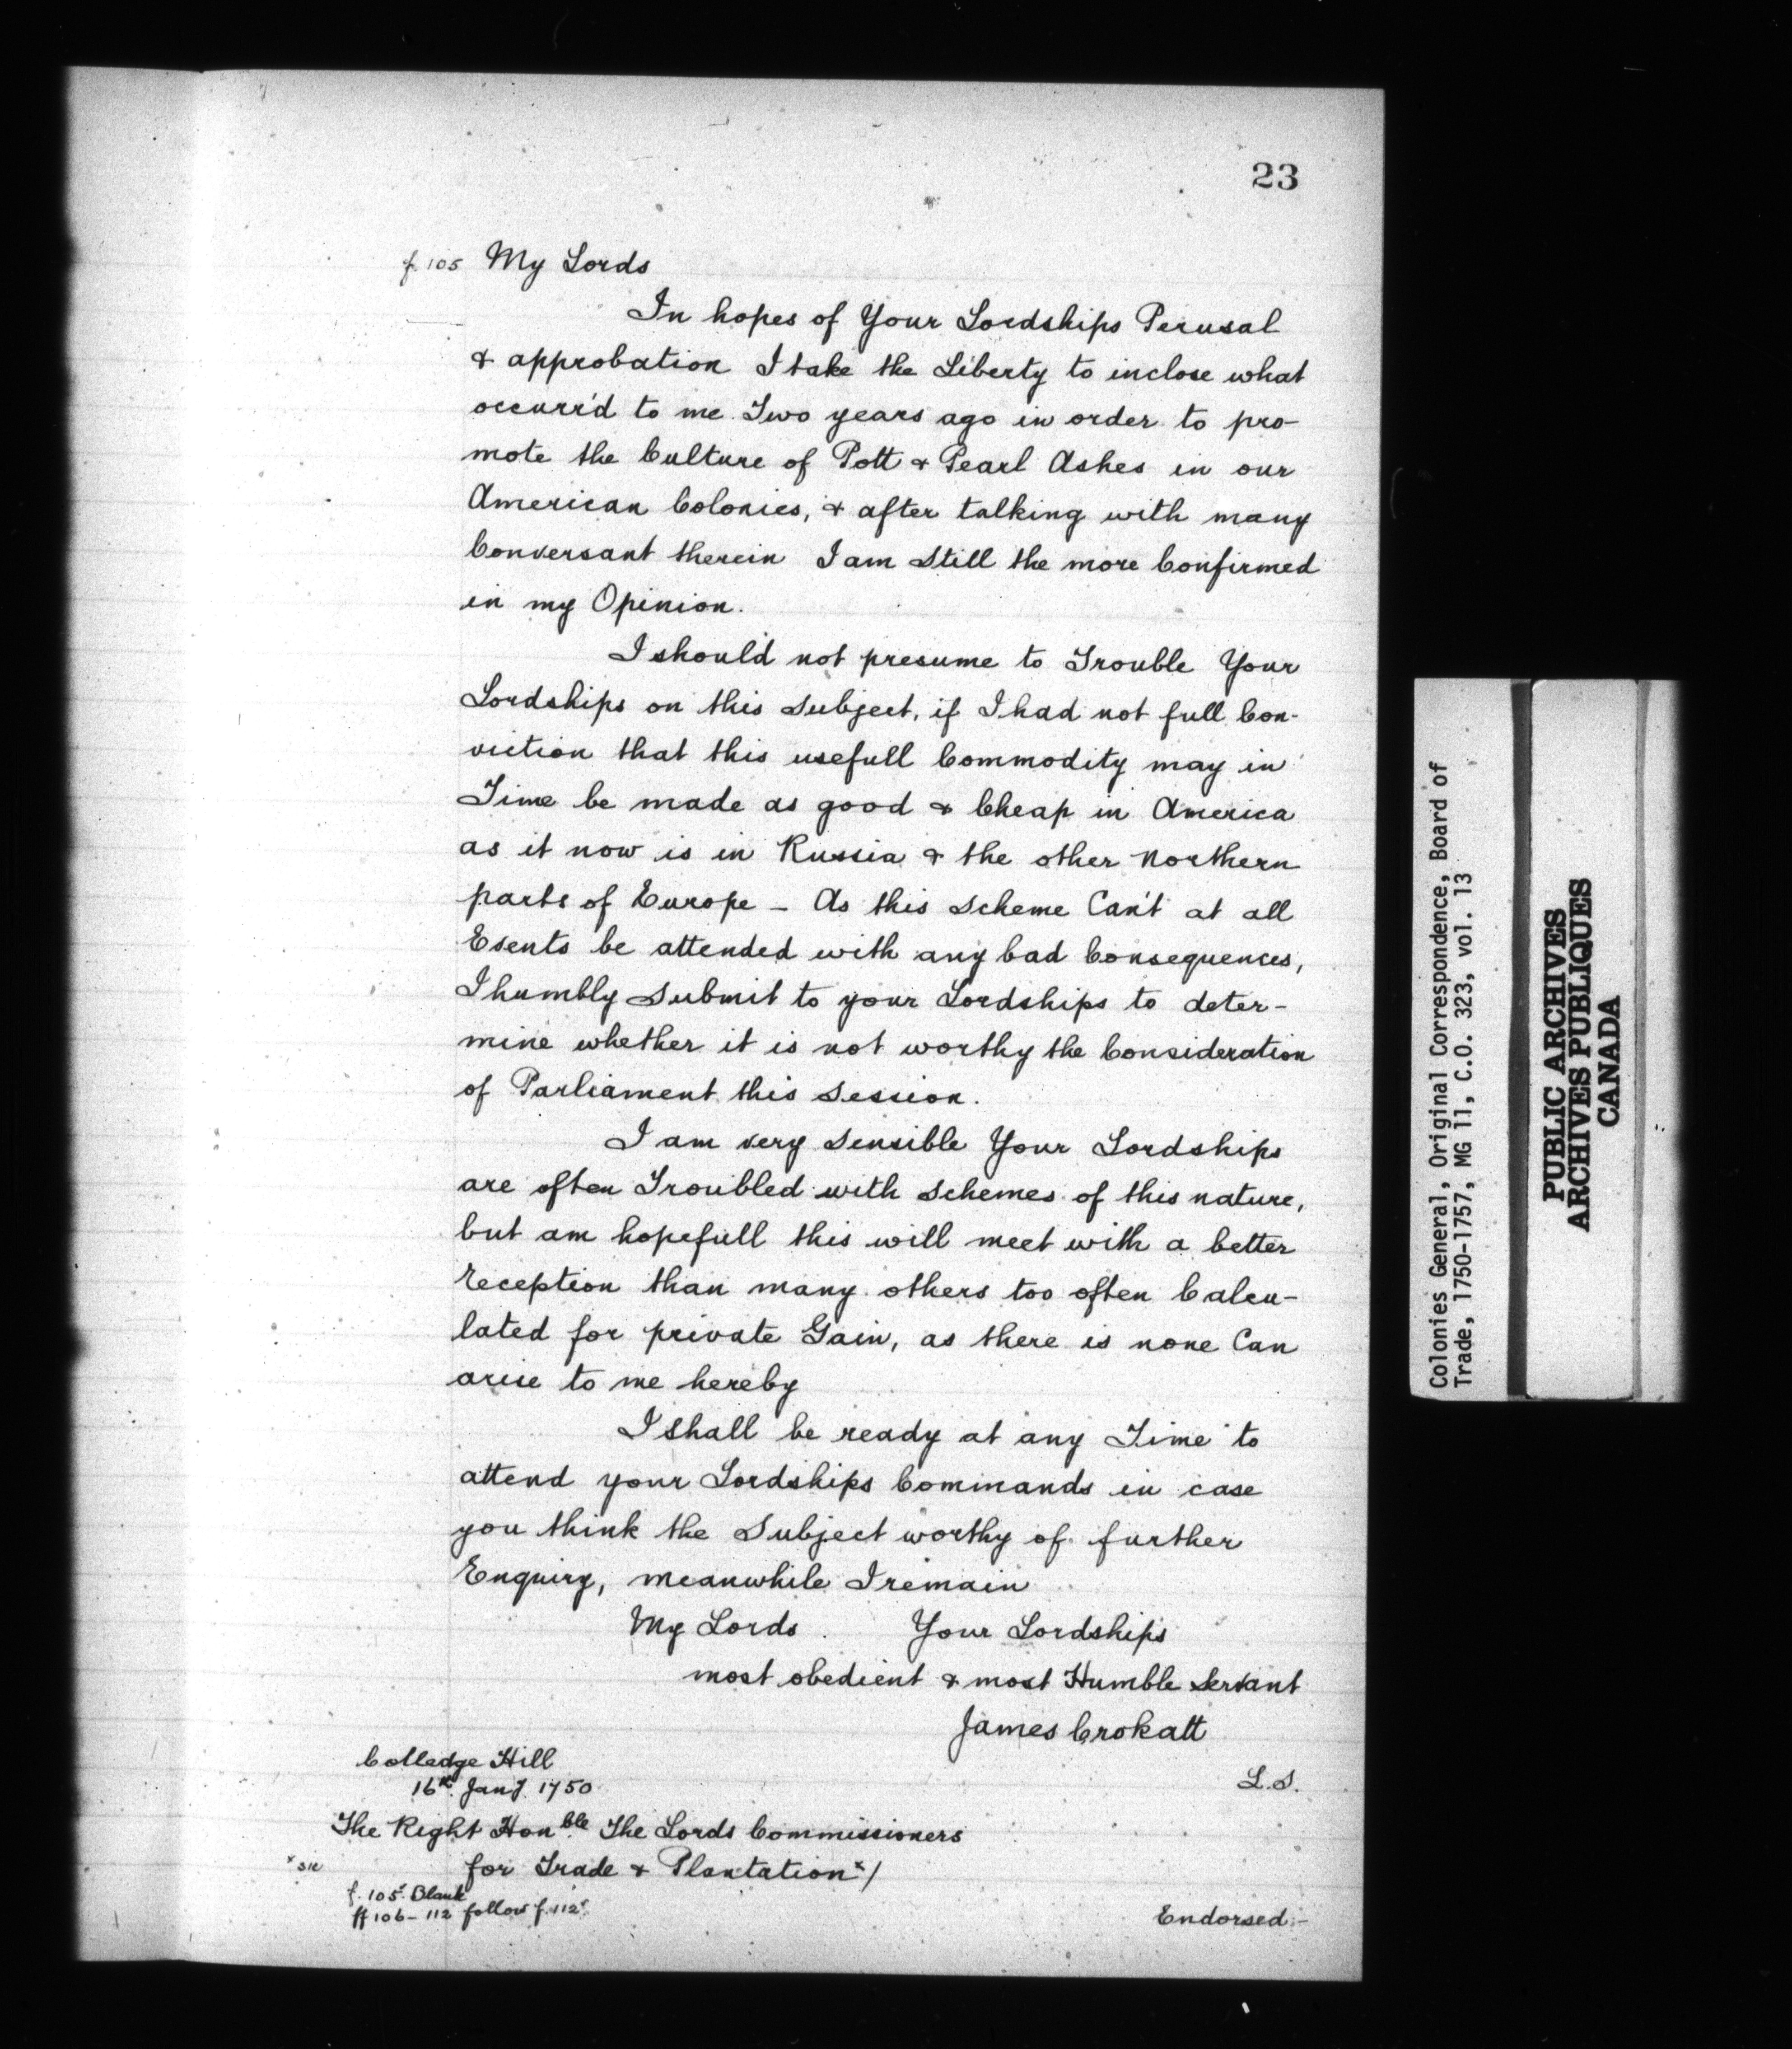 23
f. 105 My Lords
In hopes of Your Lordships Perusal
& approbation I take the Liberty to inclose what
occurr'd to me Two years ago in order to pro-
mote the Culture of Pott & Pearl Ashes in our
American Colonies, & after talking with many
Conversant therein I am Still the more Confirmed
in my Opinion.
I should not presume to Trouble Your
Lordships on this Subject, if I had not full Con-
viction that this usefull Commodity may in
Time be made as good & Cheap in America
as it now is in Russia & the other Northern
parts of Europe – As this Scheme Can't at all
Events be attended with any bad Consequences,
I humbly Submit to your Lordships to deter-
mine whether it is not worthy the Consideration
of Parliament this Session.
I am very Sensible Your Lordships
are often Troubled with Schemes of this nature,
but am hopefull this will meet with a better
reception than many others too often Calcu-
lated for private Gain, as there is none Can
arise to me hereby
I Shall be ready at any Time to
attend your Lordships Commands in case
you think the Subject worthy of further
Enquiry, meanwhile I remain
My Lords Your Lordships
most obedient & most Humble Servant
James Crokatt
Colledge Hill
16th. Jany. 1750
L.S.
The Right Honble. The Lords Commissioners
x sic for Trade & Plantation x/
f. 105v. Blank
ff 106–112 follow f. 112v.
Endorsed:–
Colonies General, Original Correspondence, Board of
Trade, 1750-1757, MG 11, C.O. 323, vol. 13
PUBLIC ARCHIVES
ARCHIVES PUBLIQUES
CANADA